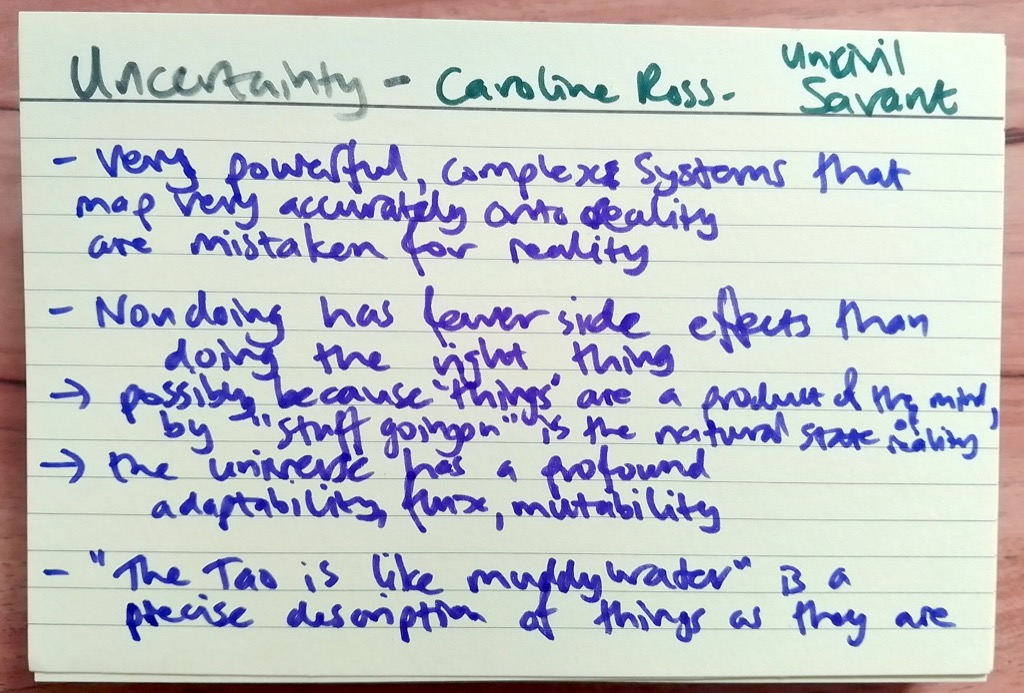 Uncertainty - Caroline Ross. Uncivil Savant
- Very powerful, complex systems that
map very accurately onto reality
are mistaken for reality
- Non doing has fewer side effects than
doing the right thing
→ possibly because "things" are a product of the mind,
by "stuff going on" is the natural state of reality
→ the universe has a profound
adaptability, flux, mutability
- "The Tao is like muddy water" is a
precise description of things as they are